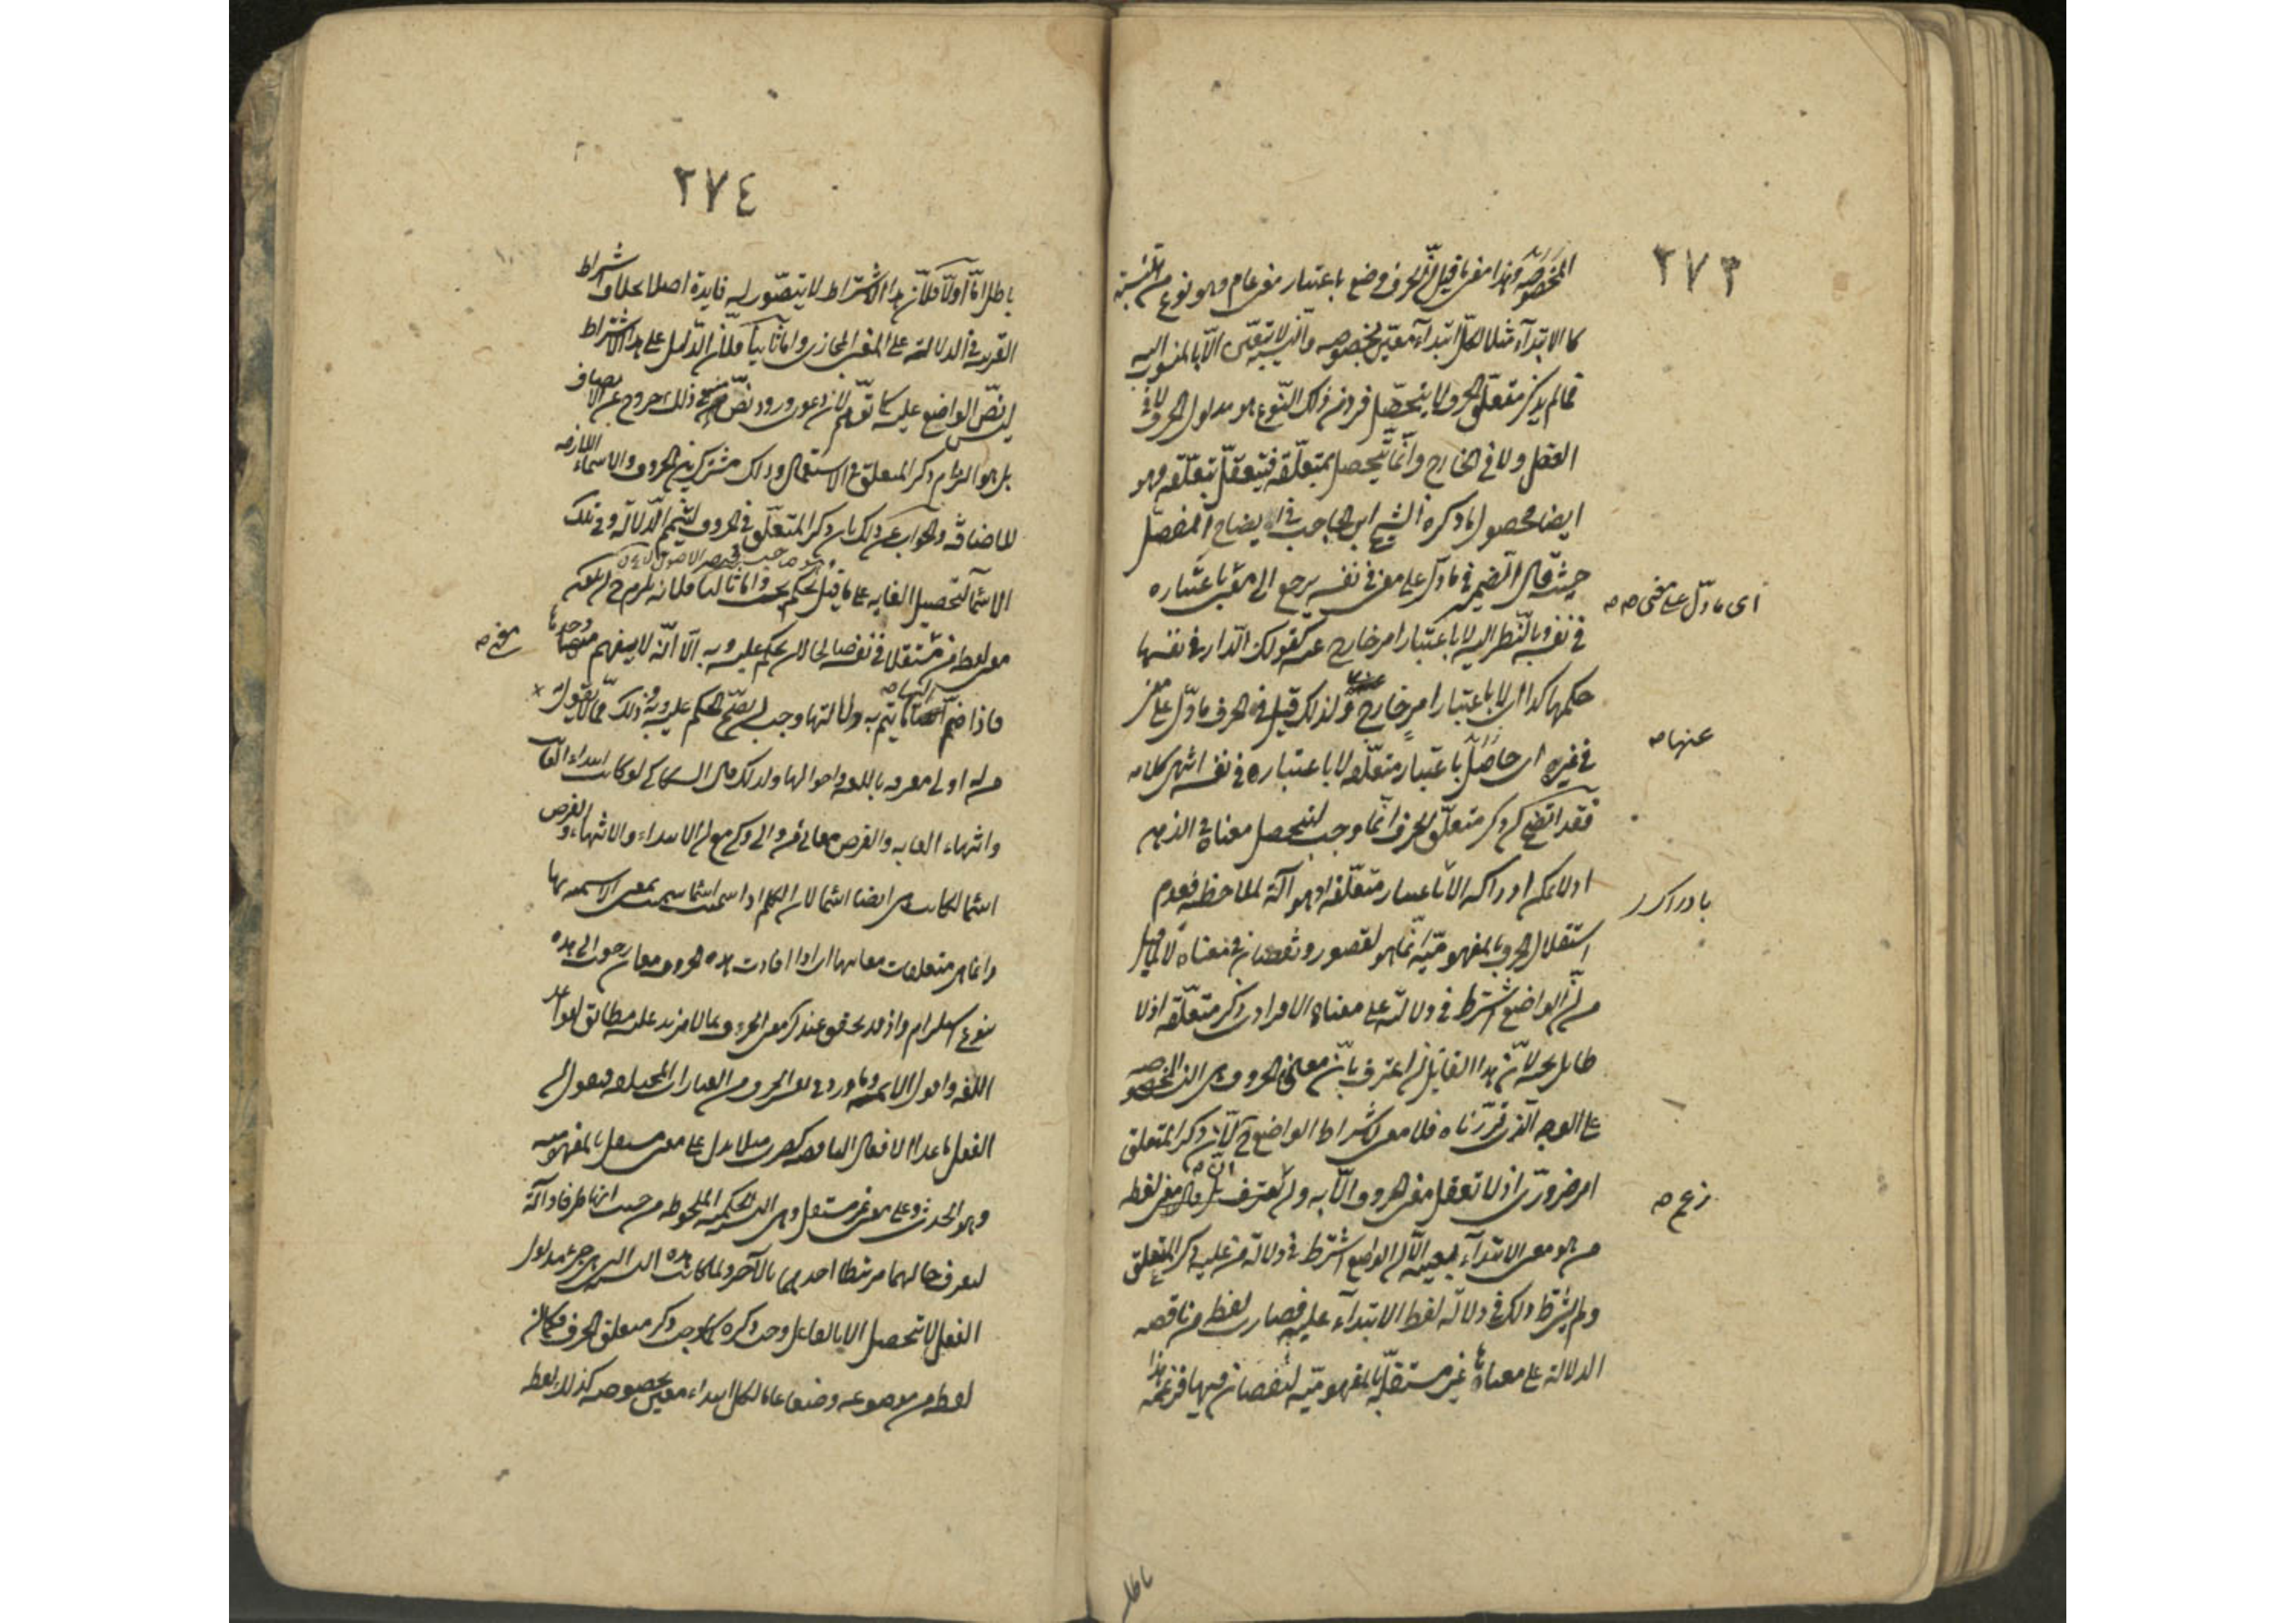 ٢٧٣
المخصوصة وهذا معنى ما قيل ان الحرف وضع باعتبار معنى عام وهو نوع من النسبة
كالابتداء مثلا لكل ابتداء معين بخصوصه والنسبة لا تتعين الا بالمنسوب اليه
فما لم يذكر متعلق الحرف لا يتحصل فرد من ذلك النوع هو مدلول الحرف لا في
العقل ولا في الخارج وانما يتحصل بمتعلقه فيتعقل بتعلقه وهو
ايضا محصول ما ذكره الشيخ ابن الحاجب في ايضاح المفصل
حيث قال الضمير في ما دل على معنى في نفسه يرجع الى معنى باعتباره
اى ما دل على معنى صح
في نفسه وبالنظر اليه لا باعتبار امر خارج عنه كقولك الدار في نفسها
حكمها كذا اى لا باعتبار امر خارج ولذلك قيل في الحرف ما دل على معنى
عنها صح
في غيره اى حاصل باعتبار متعلقه لا باعتباره في نفسه انتهى كلامه
فقد اتضح ان ذكر متعلق الحرف انما وجب ليتحصل معناه في الذهن
اذ لا يمكن ادراكه الا باعتبار متعلقه اذ هو آلة لملاحظته فعدم
استقلال الحرف بالمفهومية انما هو لقصور ونقصان في معناه لا لما قيل
من ان الواضع اشترط في دلالته على معناه الافرادى ذكر متعلقه اذ لا
طائل تحته لان هذا القائل ان اعترف بان معانى الحروف هى النسب المخصوصة
على الوجه الذى قررناه فلا معنى لاشتراط الواضع ح لان ذكر المتعلق
امر ضرورى اذ لا تعقل معنى الحروف الا به وان لم يعترف بل زعم ان معنى لفظه
زعم صح
من هو معنى الابتداء بعينه الا ان الواضع اشترط في دلالة من عليه ذكر المتعلق
ولم يشترط ذلك في دلالة لفظ الابتداء عليه فصارت لفظة من ناقصة
الدلالة على معناها غير مستقلة بالمفهومية لنقصان فيها فزعمه هذا
باطل
٢٧٤
باطل اما اولا فلان هذا الاشتراط لا يتصور له فايدة اصلا بخلاف اشتراط
القرينة في الدلالة على المعنى المجازى واما ثانيا فلان الدليل على هذا الاشتراط
ليس نص الواضع عليه كما توهم لان دعوى ورود نص منه في ذلك خروج عن الانصاف
بل هو التزام ذكر المتعلق في الاستعمال وذلك مشترك بين الحروف والاسماء اللازمة
للاضافة والجواب عن ذلك بان ذكر المتعلق في الحروف لتتميم الدلالة وفي تلك
الاسماء لتحصيل الغاية على ما قيل تحكم بحت واما ثالثا فلانه يلزم ح ان يكون
معنى لفظة من مستقلا في نفسه صالحا لان يحكم عليه وبه الا انه لا يفهم منها وحدها
فاذا ضم اليها ما يتم به دلالتها وجب ان يصح الحكم عليه وبه وذلك مما لا يقول به
من له ادنى معرفة باللغة واحوالها ولذلك قال السكاكى لو كانت ابتداء الغاية
وانتهاء الغاية والغرض معانى من والى وكى مع ان الابتداء والانتهاء والغرض
اسماء لكانت هى ايضا اسماء لان الكلمة اذا سميت اسما سميت لمعنى الاسمية لها
وانما هى متعلقات معانيها اى اذا افادت هذه الحروف معان رجعت الى هذه
بنوع استلزام واذ قد تحقق عندك معنى الحرف بما لا مزيد عليه مطابق لقواعد
اللغة واقوال الائمة وما ورد في تفسير الحروف من العبارات المختلفة فنقول ان
الفعل ما عدا الافعال الناقصة كضرب مثلا يدل على معنى مستقل بالمفهومية
وهو الحدث وعلى معنى غير مستقل وهو النسبة الحكمية الملحوظة من حيث انها طرفا وآلة
لتعرف حالهما مرتبطا احدهما بالآخر ولما كانت هذه النسبة التى هى جزء مدلول
الفعل لا تتحصل الا بالفاعل وجب ذكره كما وجب ذكر متعلق الحرف فكما ان
لفظة من موضوعة وضعا عاما لكل ابتداء معين بخصوصه كذلك لفظ